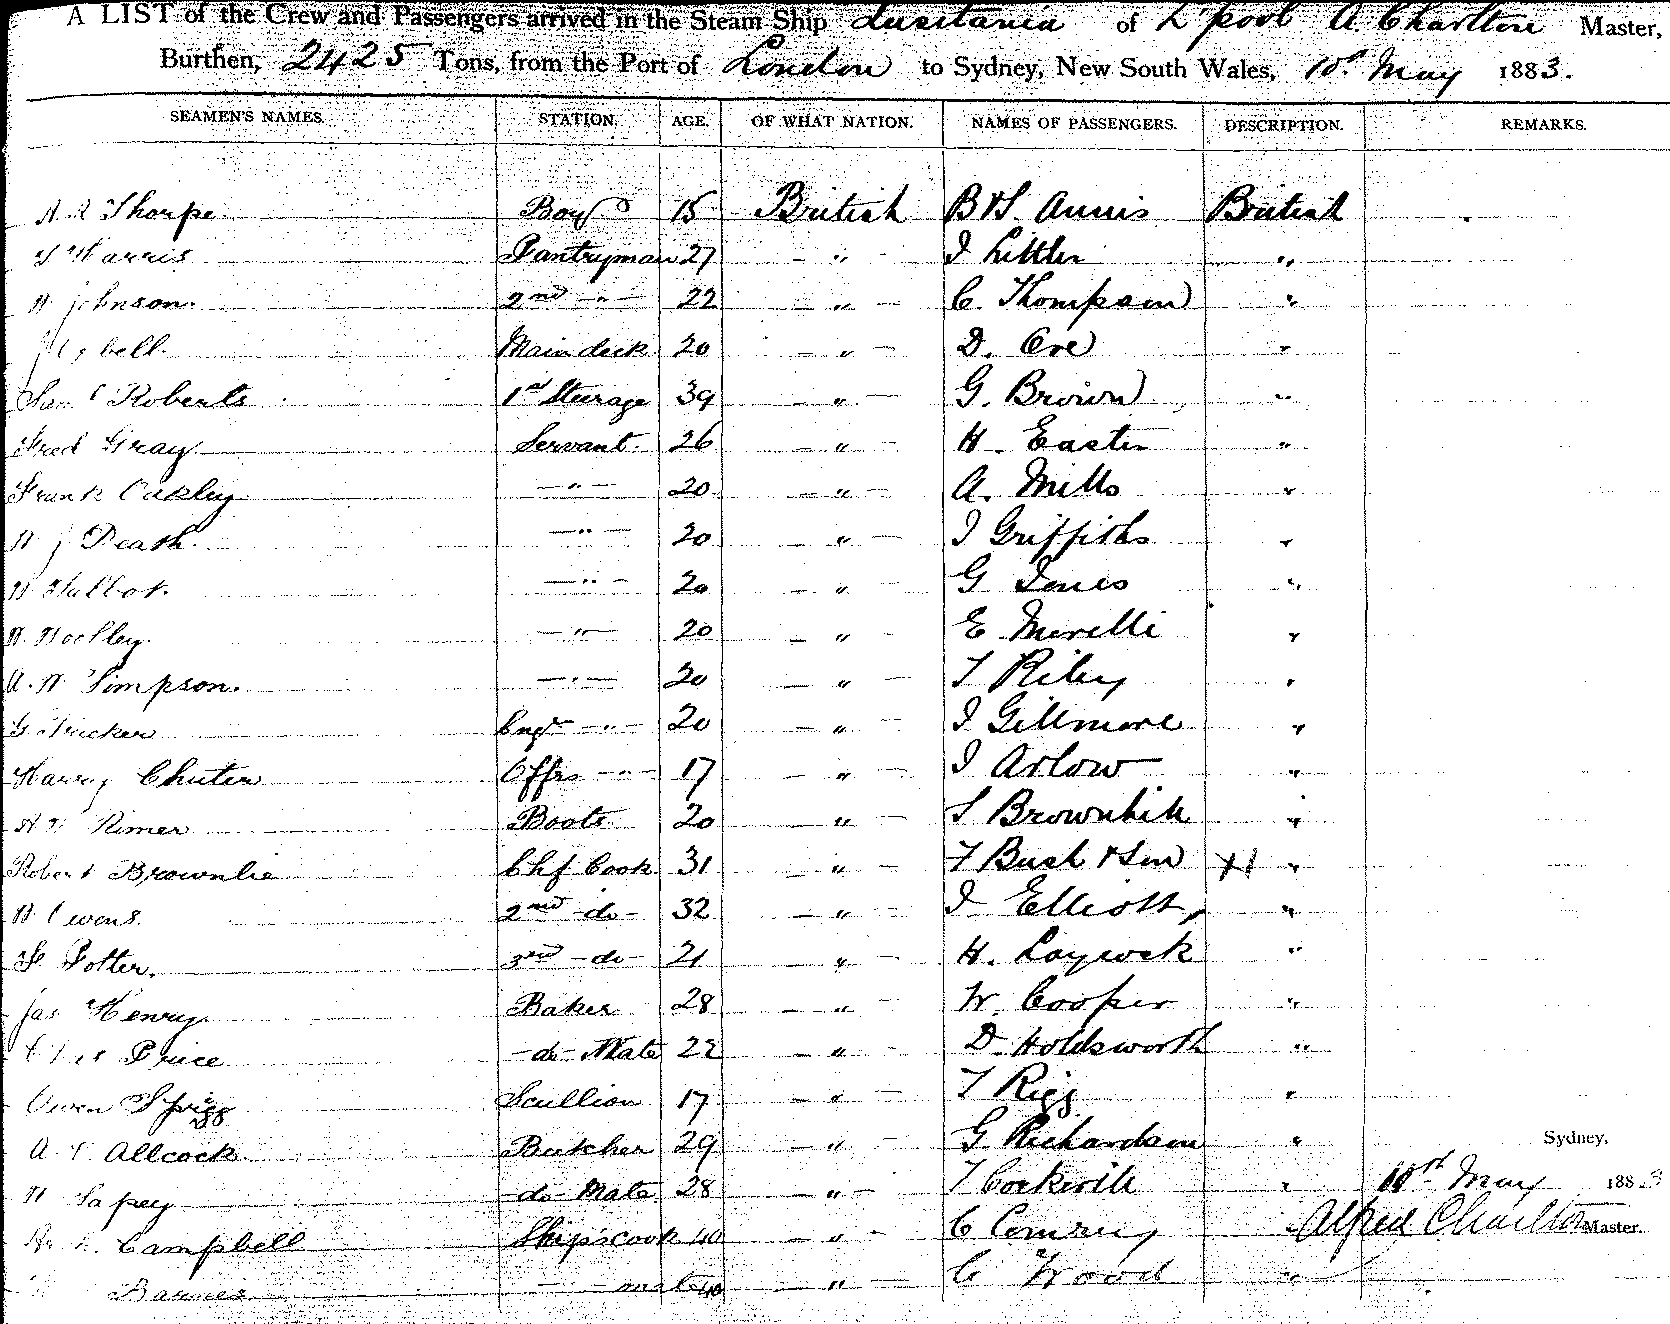 A LIST of the Crew and Passengers arrived in the Steam Ship Lusitania of L'pool A. Charlton Master,
Burthen, 2425 Tons, from the Port of London to Sydney, New South Wales, 10th May 1883.
SEAMEN'S NAMES. STATION. AGE. OF WHAT NATION. NAMES OF PASSENGERS. DESCRIPTION. REMARKS.
Thorpe Boy 15 British Annis British
Harris Pantryman 27 " J Littler "
Johnson. 2nd " 22 " C. Thompson "
Main deck 20 " D. Ore "
Roberts 1st Steerage 39 " G. Brown "
Fred Gray Servant 26 " H. Easter "
Frank Oakley " 20 " A. Mills "
Death " 20 " J Griffiths "
" 20 " G Jones "
" 20 " E Morelli "
A. W. Simpson. " 20 " T Riley "
G. Tricker Engr " 20 " J Gillmore "
Harry Chuter Offrs " 17 " J Arlow "
Rimer Boots 20 " S Brownhill "
Robert Brownlie Chf Cook 31 " T Bush & Son "
Owens. 2nd do 32 " J Elliott "
Potter. 3rd do 21 " H. Laycock "
Jas Henry Baker 28 " W. Cooper "
Price do Mate 22 " D. Holdsworth "
Owen Sprigg Scullion 17 " T Rigg "
Allcock Butcher 29 " G Richardson " Sydney,
Sapey do Mate 28 " T Cockerill " 10th May 1883
Campbell Ship's cook 40 " C Comrey " Alfred Charlton Master.
Barnes mate 40 " C Wood "